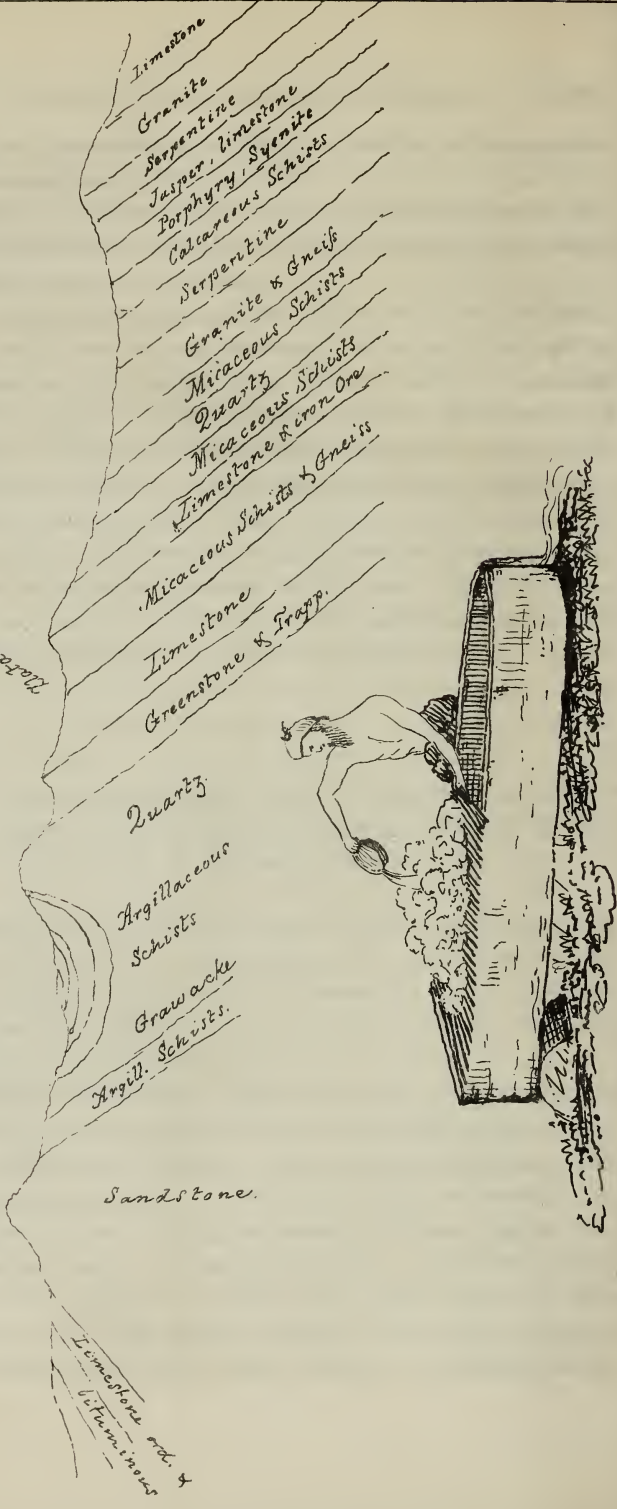 Limestone
Granite
Serpentine
Jasper, limestone
Porphyry, Syenite
Calcareous Schists
Serpentine
Granite & Gneiſs
Micaceous Schists
Quartz
Micaceous Schists
Limestone & iron Ore
Micaceous Schists & Gneiss
Limestone
Greenstone & Trapp.
Quartz.
Argillaceous
Schists
Grawacke
Argill. Schists.
Sandstone.
Limestone ord. &
bituminous